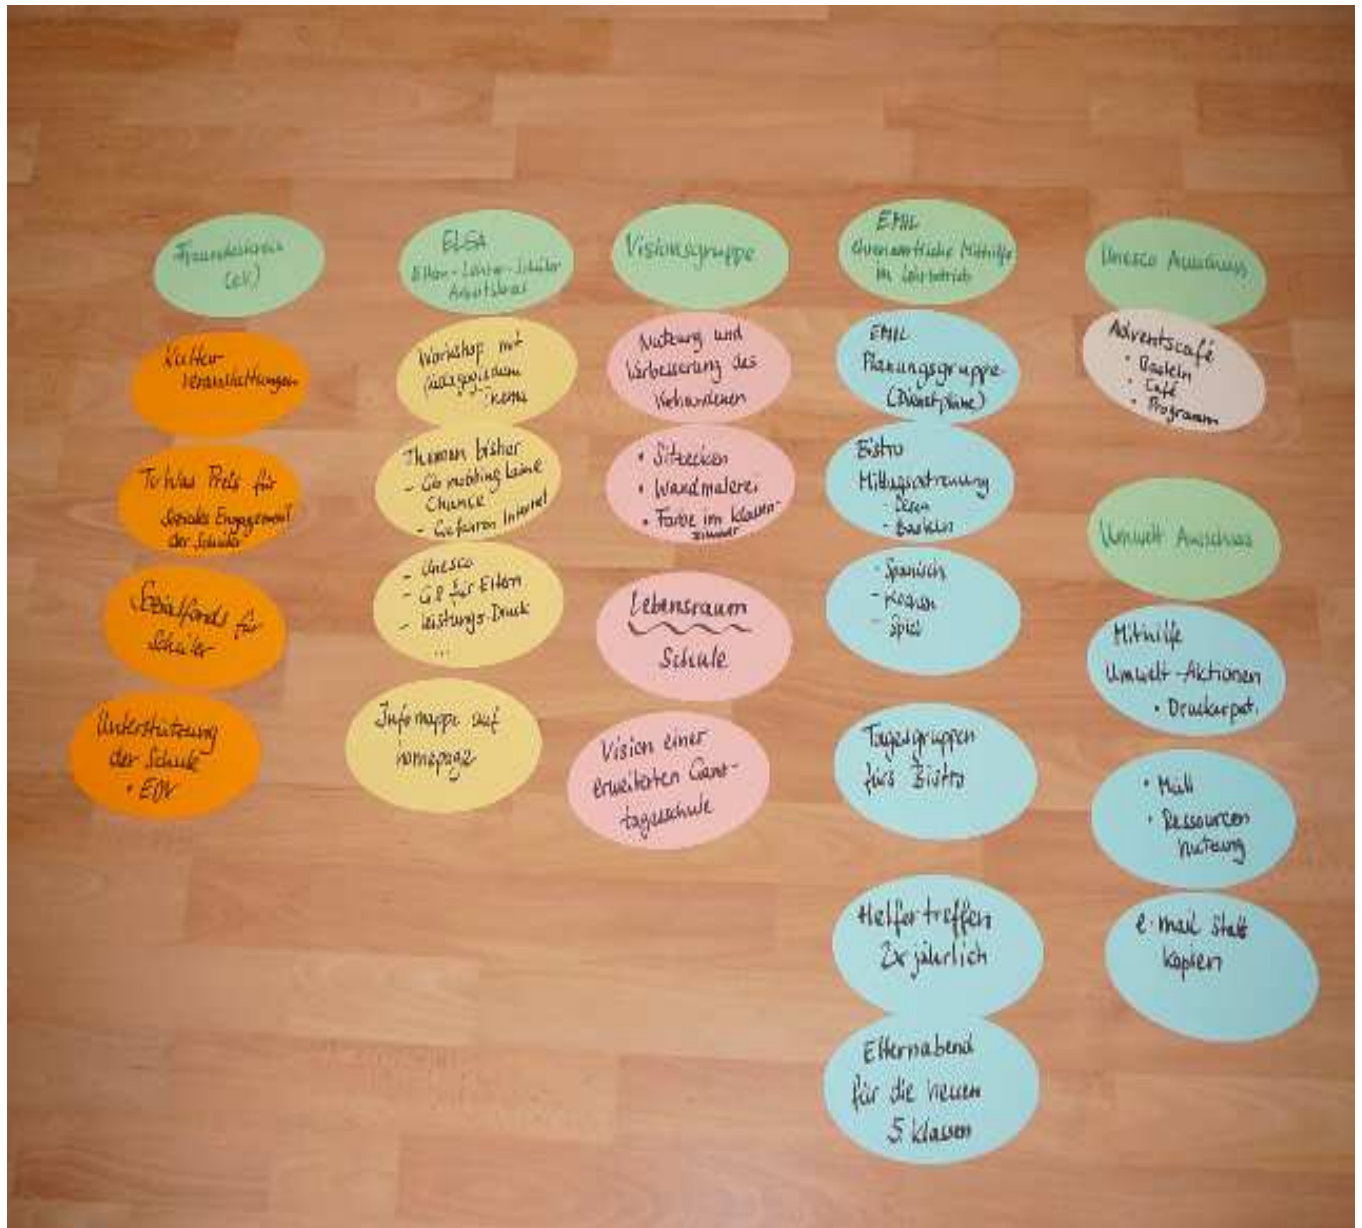 Freundeskreis
(eV)
Kultur-
veranstaltungen
Tu Was Preis für
Soziales Engagement
der Schüler
Sozialfonds für
Schüler
Unterstützung
der Schule
• EDV
ELSA
Eltern-Lehrer-Schüler
Arbeitskreis
Workshop mit
pädagogischem
Thema
Themen bisher
- Gib mobbing keine
Chance
- Gefahren Internet
- Unesco
- G8 für Eltern
- Leistungs-Druck
...
Infomappe auf
homepage
Visionsgruppe
Nutzung und
Verbesserung des
Vorhandenen
• Sitzecken
• Wandmalerei
• Farbe im Klassen-
zimmer
Lebensraum
Schule
Vision einer
erweiterten Ganz-
tagesschule
EMIL
ehrenamtliche Mithilfe
im Lehrbetrieb
EMIL
Planungsgruppe
(Dienstpläne)
Bistro
Mittagsbetreuung
- Lesen
- Basteln
- Spanisch
- Kochen
- Spiel
Tagesgruppen
fürs Bistro
Helfertreffen
2x jährlich
Elternabend
für die neuen
5. Klassen
Unesco Ausschuss
Adventscafé
• Basteln
• Café
• Programm
Umwelt Ausschuss
Mithilfe
Umwelt-Aktionen
• Druckerpat.
• Müll
• Ressourcen
nutzung
e-mail statt
Kopien